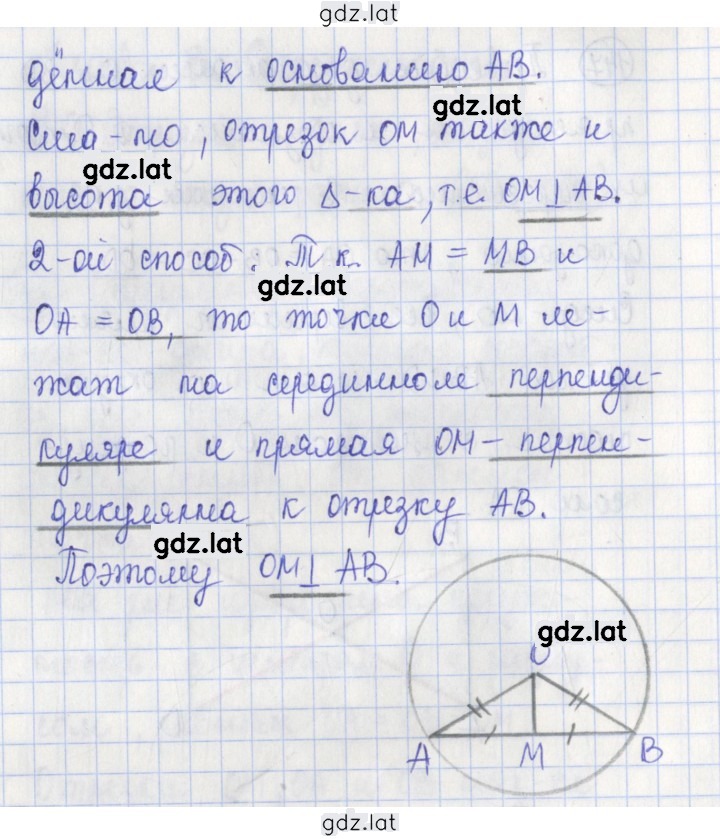 gdz.lat
дённая к основанию AB.
gdz.lat
Сиа-но, отрезок OM также и
gdz.lat
высота этого Δ-ка, т.е. OM⊥AB.
2-ой способ. Т.к. AM = MB и
gdz.lat
OA = OB, то точки O и M ле-
жат на серединном перпенди-
куляре и прямая OM - перпен-
дикулярна к отрезку AB.
gdz.lat
Поэтому OM⊥AB.
gdz.lat
O
A M B
gdz.lat